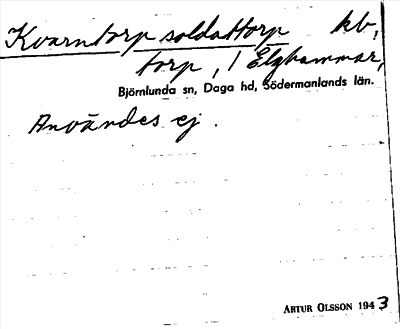 Kvarntorp soldattorp kb,
torp, / Elghammar,
Björnlunda sn, Daga hd, Södermanlands län.
Användes ej.
ARTUR OLSSON 1943